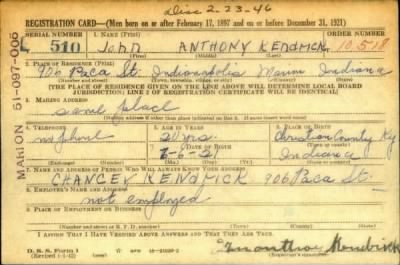 Disc 2-23-46
REGISTRATION CARD—(Men born on or after February 17, 1897 and on or before December 31, 1921)
SERIAL NUMBER 1. NAME (Print) ORDER NUMBER
510 John ANTHONY KENDRICK 10,518
(First) (Middle) (Last)
2. PLACE OF RESIDENCE (Print)
906 Paca St. Indianapolis Marion Indiana
(Number and street) (Town, township, village, or city) (County) (State)
[THE PLACE OF RESIDENCE GIVEN ON THE LINE ABOVE WILL DETERMINE LOCAL BOARD
JURISDICTION; LINE 2 OF REGISTRATION CERTIFICATE WILL BE IDENTICAL]
3. MAILING ADDRESS
same place
[Mailing address if other than place indicated on line 2. If same insert word same]
4. TELEPHONE 5. AGE IN YEARS 6. PLACE OF BIRTH
no phone 20 yrs. Christian County Ky
DATE OF BIRTH
6-6-21 Indiana
(Exchange) (Number) (Mo.) (Day) (Yr.) (State or country)
7. NAME AND ADDRESS OF PERSON WHO WILL ALWAYS KNOW YOUR ADDRESS
CHANCEY KENDRICK 906 Paca St.
8. EMPLOYER'S NAME AND ADDRESS
not employed
9. PLACE OF EMPLOYMENT OR BUSINESS
(Number and street or R. F. D. number) (Town) (County) (State)
I AFFIRM THAT I HAVE VERIFIED ABOVE ANSWERS AND THAT THEY ARE TRUE.
D. S. S. Form 1
(Revised 1-1-42) (over)
Kendrick
MARION 51-097-006